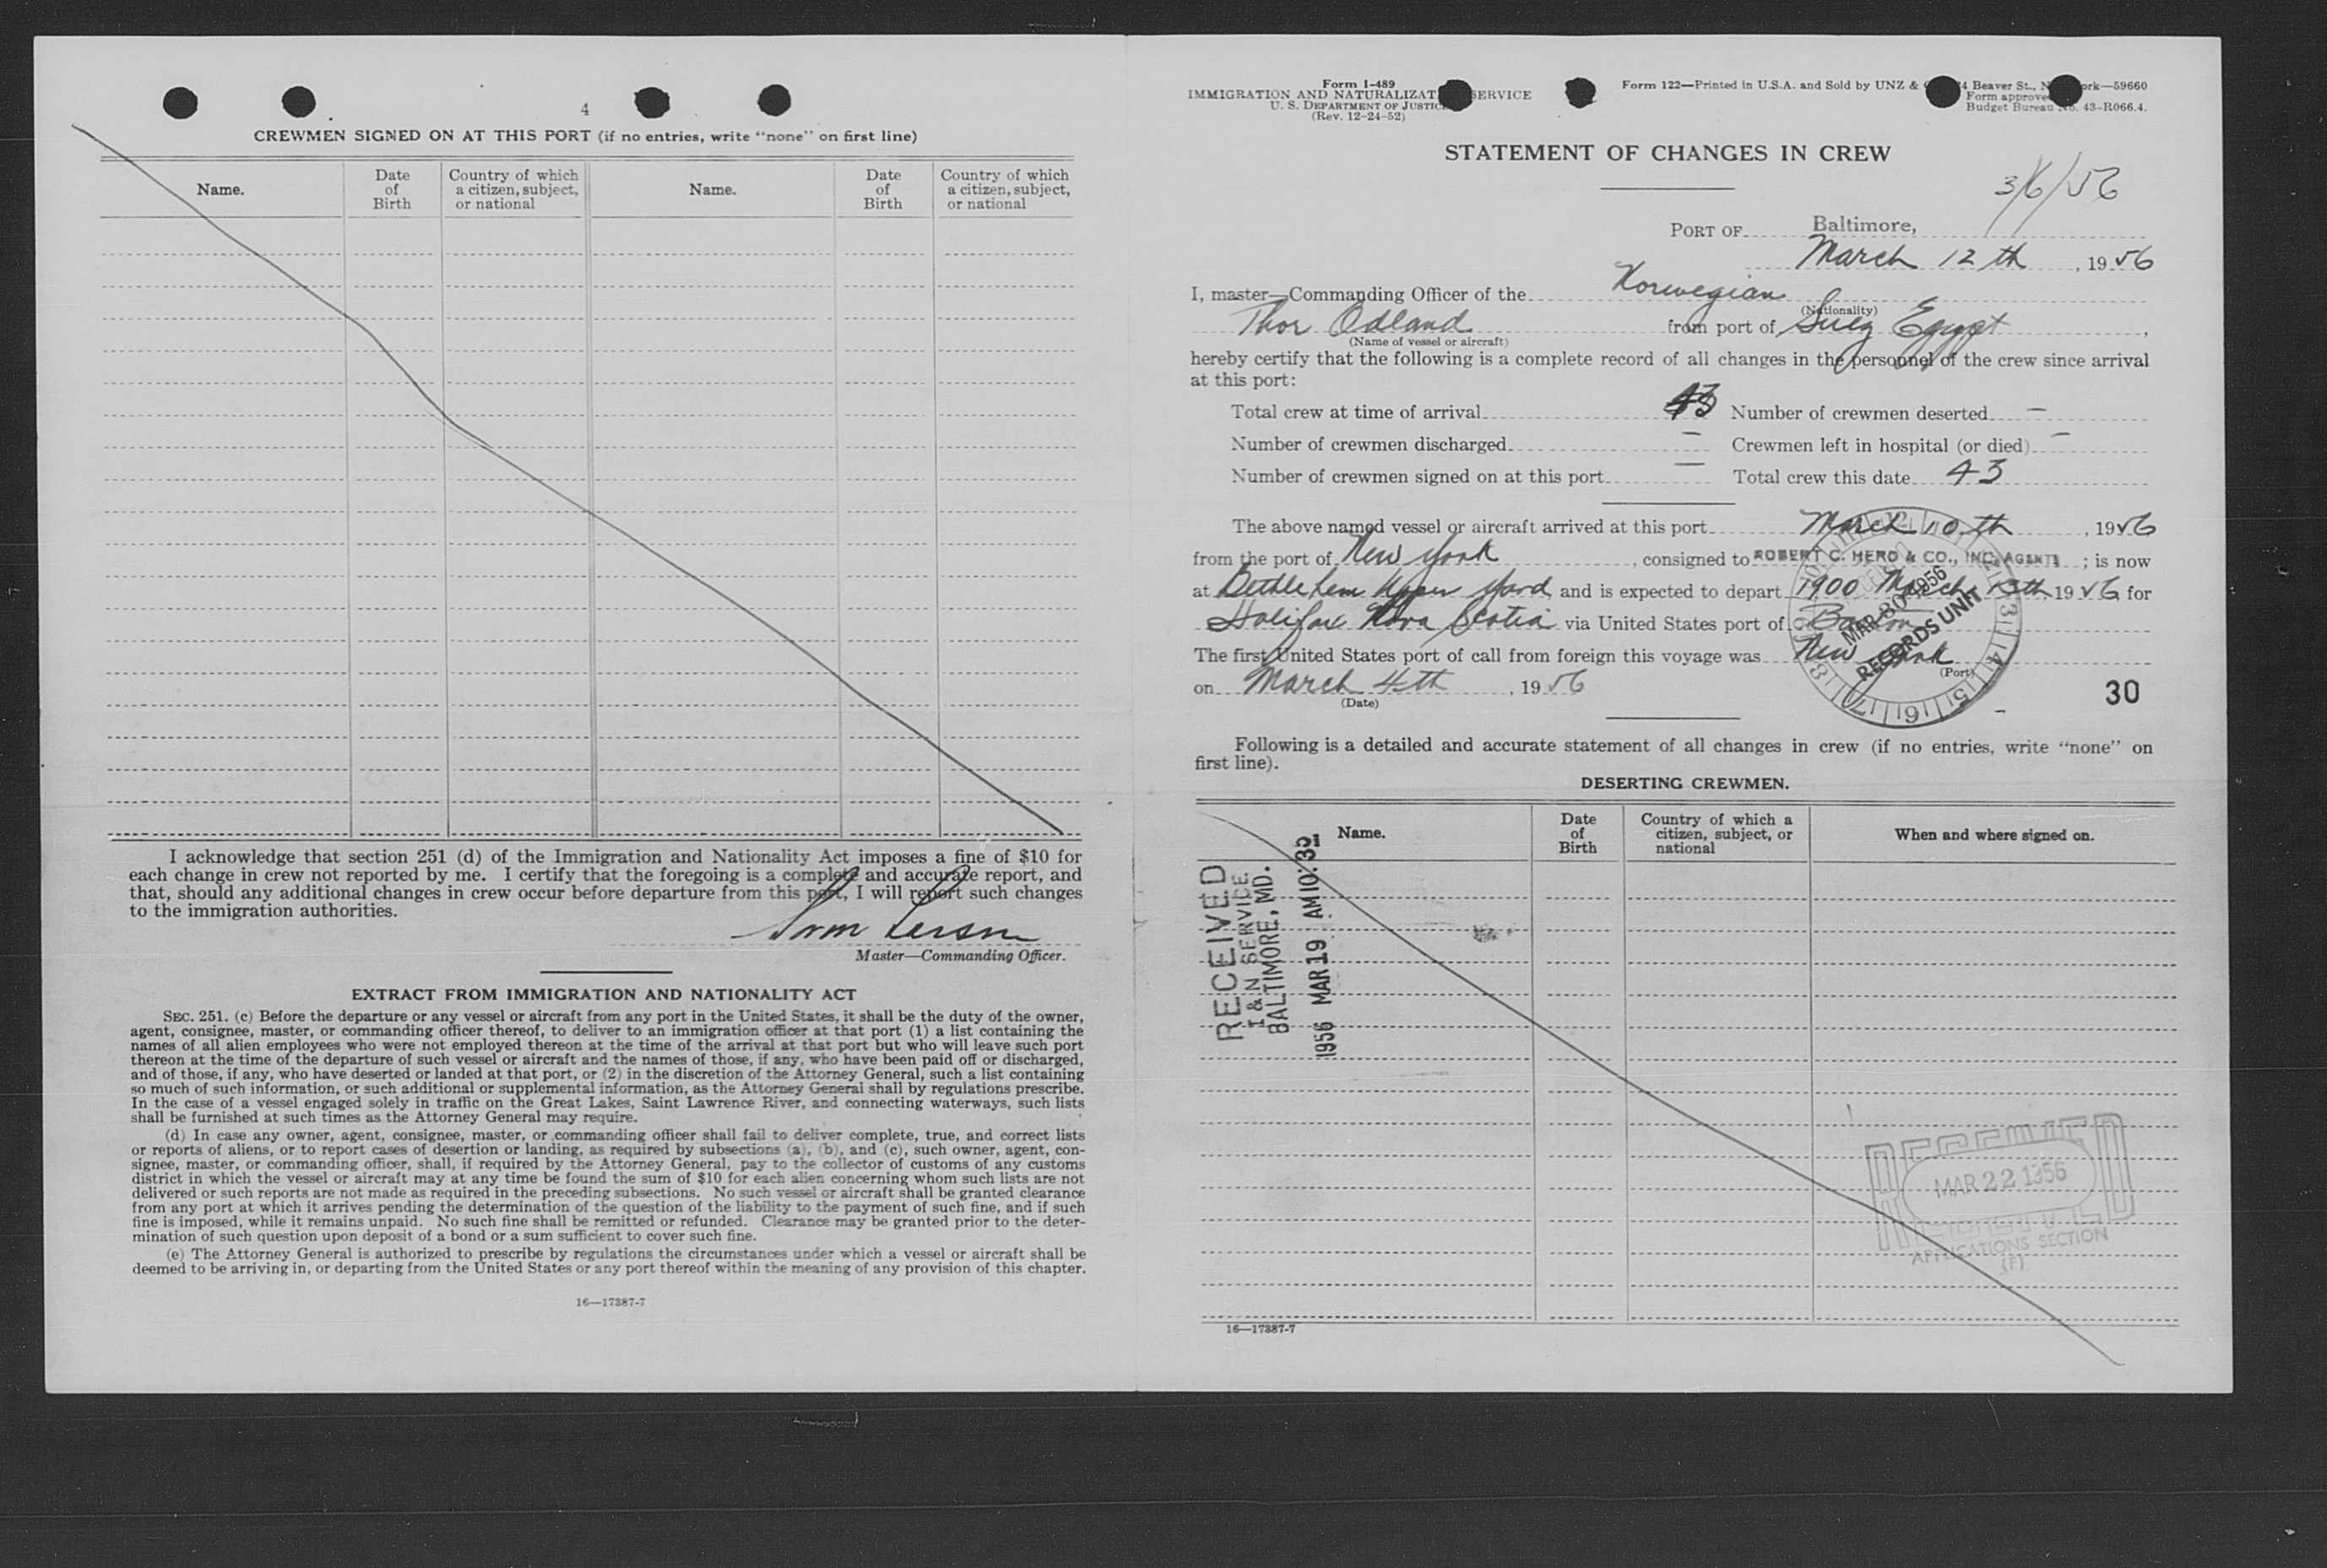 4
CREWMEN SIGNED ON AT THIS PORT (if no entries, write "none" on first line)
Name. Date of Birth Country of which a citizen, subject, or national Name. Date of Birth Country of which a citizen, subject, or national
I acknowledge that section 251 (d) of the Immigration and Nationality Act imposes a fine of $10 for
each change in crew not reported by me. I certify that the foregoing is a complete and accurate report, and
that, should any additional changes in crew occur before departure from this port, I will report such changes
to the immigration authorities.
Master—Commanding Officer.
EXTRACT FROM IMMIGRATION AND NATIONALITY ACT
SEC. 251. (c) Before the departure or any vessel or aircraft from any port in the United States, it shall be the duty of the owner,
agent, consignee, master, or commanding officer thereof, to deliver to an immigration officer at that port (1) a list containing the
names of all alien employees who were not employed thereon at the time of the arrival at that port but who will leave such port
thereon at the time of the departure of such vessel or aircraft and the names of those, if any, who have been paid off or discharged,
and of those, if any, who have deserted or landed at that port, or (2) in the discretion of the Attorney General, such a list containing
so much of such information, or such additional or supplemental information, as the Attorney General shall by regulations prescribe.
In the case of a vessel engaged solely in traffic on the Great Lakes, Saint Lawrence River, and connecting waterways, such lists
shall be furnished at such times as the Attorney General may require.
(d) In case any owner, agent, consignee, master, or commanding officer shall fail to deliver complete, true, and correct lists
or reports of aliens, or to report cases of desertion or landing, as required by subsections (a), (b), and (c), such owner, agent, con-
signee, master, or commanding officer, shall, if required by the Attorney General, pay to the collector of customs of any customs
district in which the vessel or aircraft may at any time be found the sum of $10 for each alien concerning whom such lists are not
delivered or such reports are not made as required in the preceding subsections. No such vessel or aircraft shall be granted clearance
from any port at which it arrives pending the determination of the question of the liability to the payment of such fine, and if such
fine is imposed, while it remains unpaid. No such fine shall be remitted or refunded. Clearance may be granted prior to the deter-
mination of such question upon deposit of a bond or a sum sufficient to cover such fine.
(e) The Attorney General is authorized to prescribe by regulations the circumstances under which a vessel or aircraft shall be
deemed to be arriving in, or departing from the United States or any port thereof within the meaning of any provision of this chapter.
16—17387-7
Form I-489
IMMIGRATION AND NATURALIZAT SERVICE
U. S. DEPARTMENT OF JUSTIC
(Rev. 12-24-52)
Form 122—Printed in U.S.A. and Sold by UNZ & 4 Beaver St., N ork—59660
Form approve
Budget Bureau No. 43-R066.4.
STATEMENT OF CHANGES IN CREW
3/6/56
PORT OF Baltimore,
March 12 th, 1956
I, master—Commanding Officer of the Norwegian
(Nationality)
Thor Odland from port of Suez Egypt,
(Name of vessel or aircraft)
hereby certify that the following is a complete record of all changes in the personnel of the crew since arrival
at this port:
Total crew at time of arrival 43 Number of crewmen deserted —
Number of crewmen discharged — Crewmen left in hospital (or died) —
Number of crewmen signed on at this port — Total crew this date 43
The above named vessel or aircraft arrived at this port March 10 th, 1956
from the port of New York, consigned to ROBERT C. HERD & CO., INC. AGENTS; is now
at Bethlehem Upper Yard and is expected to depart 1900 March 13th 1956 for
Halifax Nova Scotia via United States port of Boston
The first United States port of call from foreign this voyage was New York
(Port)
on March 4th, 1956
(Date)
MAR 30 1956
RECORDS UNIT
30
Following is a detailed and accurate statement of all changes in crew (if no entries, write "none" on
first line).
DESERTING CREWMEN.
Name. Date of Birth Country of which a citizen, subject, or national When and where signed on.
RECEIVED
I & N SERVICE
BALTIMORE, MD.
1956 MAR 19 AM 10:35
RECEIVED
MAR 22 1956
APPLICATIONS SECTION
(F)
16—17387-7